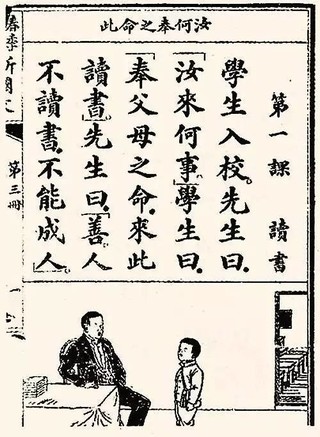 汝何奉之命此
第一課 讀書
學生入校。先生曰、
「汝來何事。」學生曰、
「奉父母之命、來此
讀書。」先生曰、「善。人
不讀書、不能成人。」
第三冊
一